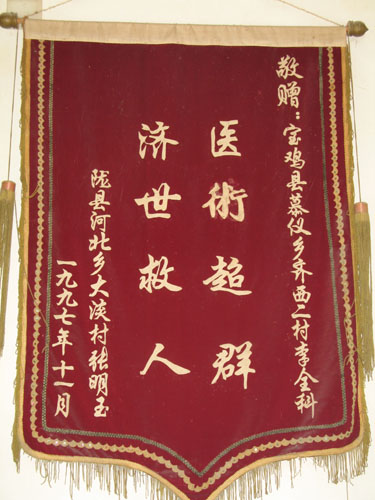 敬赠：宝鸡县慕仪乡齐西二村李全科
医術超群
济世救人
陇县河北乡大淡村张明玉
一九九七年十一月